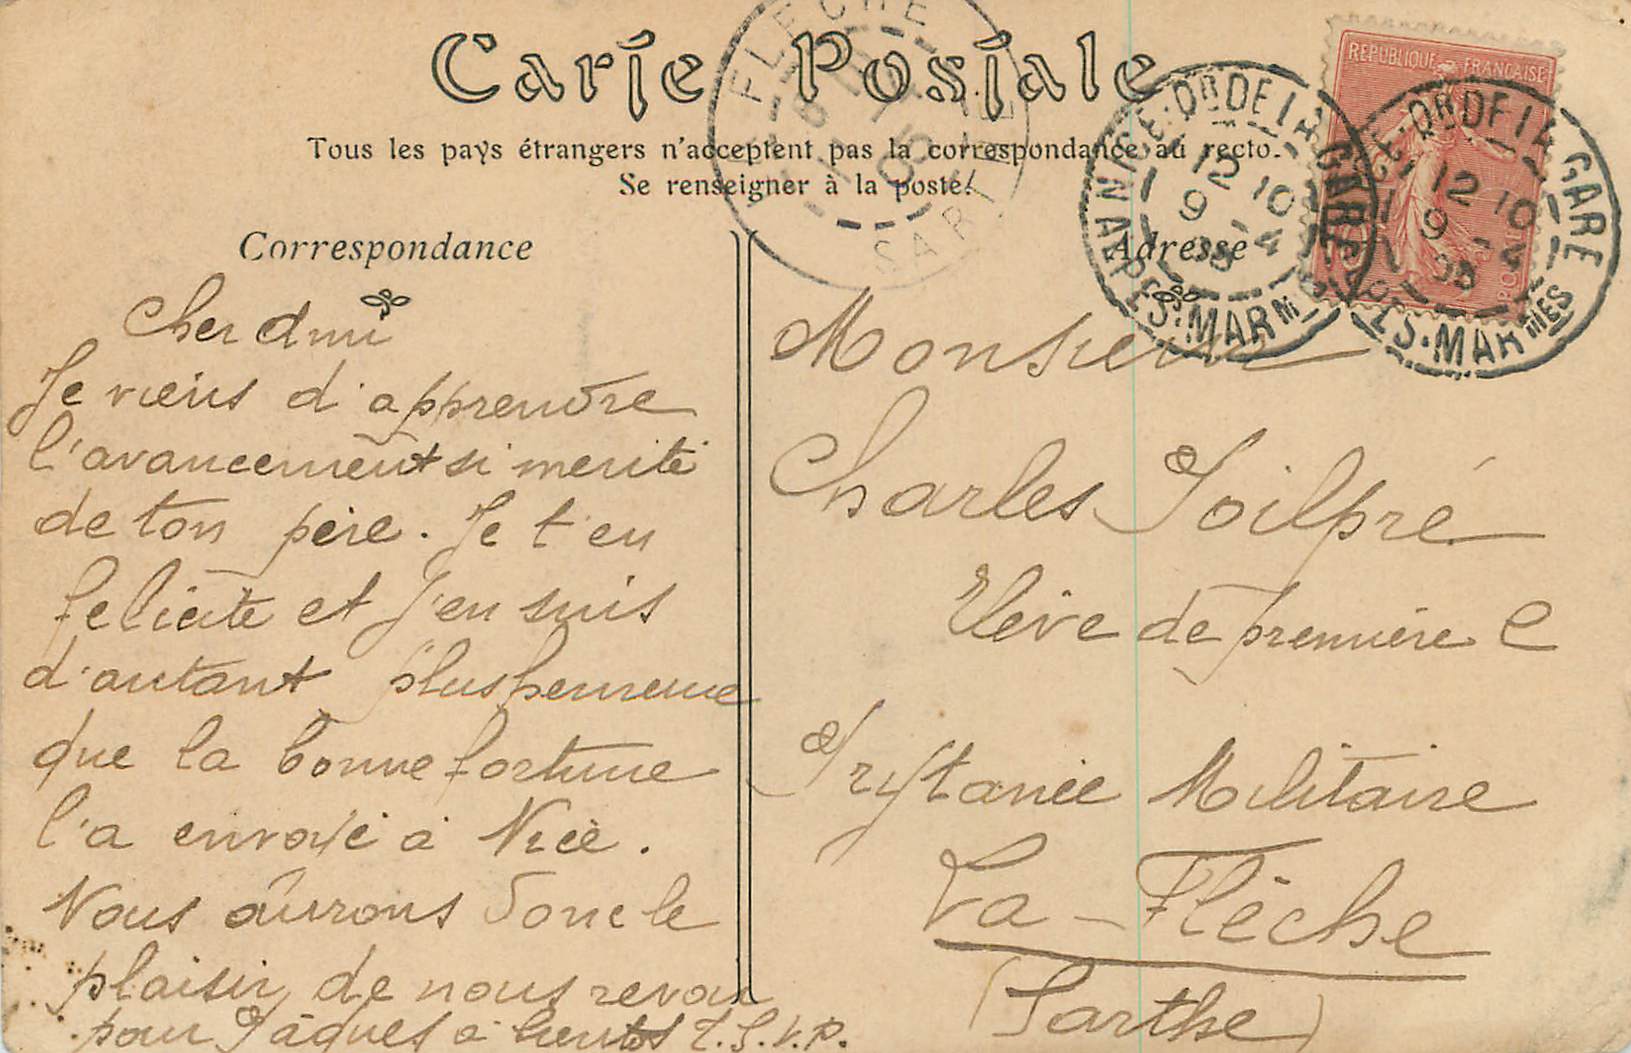 Carte Postale
Tous les pays étrangers n'acceptent pas la correspondance au recto.
Se renseigner à la poste.
Correspondance
Cher ami
Je viens d'apprendre
l'avancement si merité
de ton père. Je t'en
felicite et j'en suis
d'autant plus heureux
que la bonne fortune
l'a envoyé à Nice.
Nous aurons donc le
plaisir de nous revoir
pour Pâques à bientôt T.S.V.P.
Adresse
Monsieur
Charles Toilpré
Elève de première C
Prytanée Militaire
La-Flèche
(Sarthe)
REPUBLIQUE FRANÇAISE
NICE-QR DE LA GARE
12 10
9 - 4
05
ALPES-MARMES
NICE-QR DE LA GARE
12 10
9 - 4
05
ALPES-MARMES
FLECHE
05
SARTHE